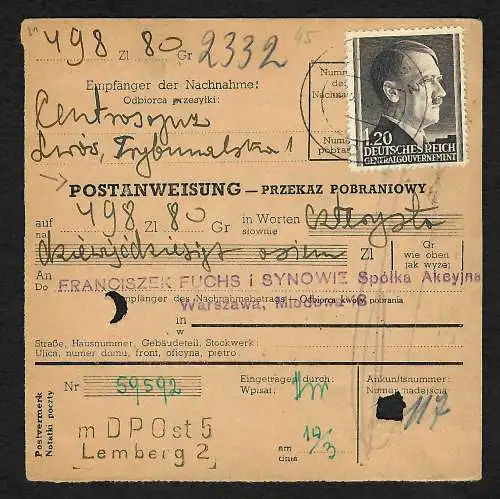 498 Zł 80 Gr 2332 45
Empfänger der Nachnahme:
Odbiorca przesyłki:
Lwów, Trybunalska 1
1.20
DEUTSCHES REICH
GENERALGOUVERNEMENT
POSTANWEISUNG — PRZEKAZ POBRANIOWY
auf
na 498 Zł 80 Gr in Worten
słownie czterysta
dziewięćdziesiąt osiem Zł Gr
wie oben
jak wyżej
An
Do FRANCISZEK FUCHS i SYNOWIE Spółka Akcyjna
Empfänger des Nachnahmebetrags — Odbiorca kwoty pobrania
Warszawa, Miodowa 18
in
w
Straße, Hausnummer, Gebäudeteil, Stockwerk:
Ulica, numer domu, front, oficyna, piętro:
Postvermerk
Notatki poczty
Nr 59592 Eingetragen durch:
Wpisał: Ankunftsnummer:
Numer nadejścia:
117
m DPOst 5
Lemberg 2
am
dnia 19/3